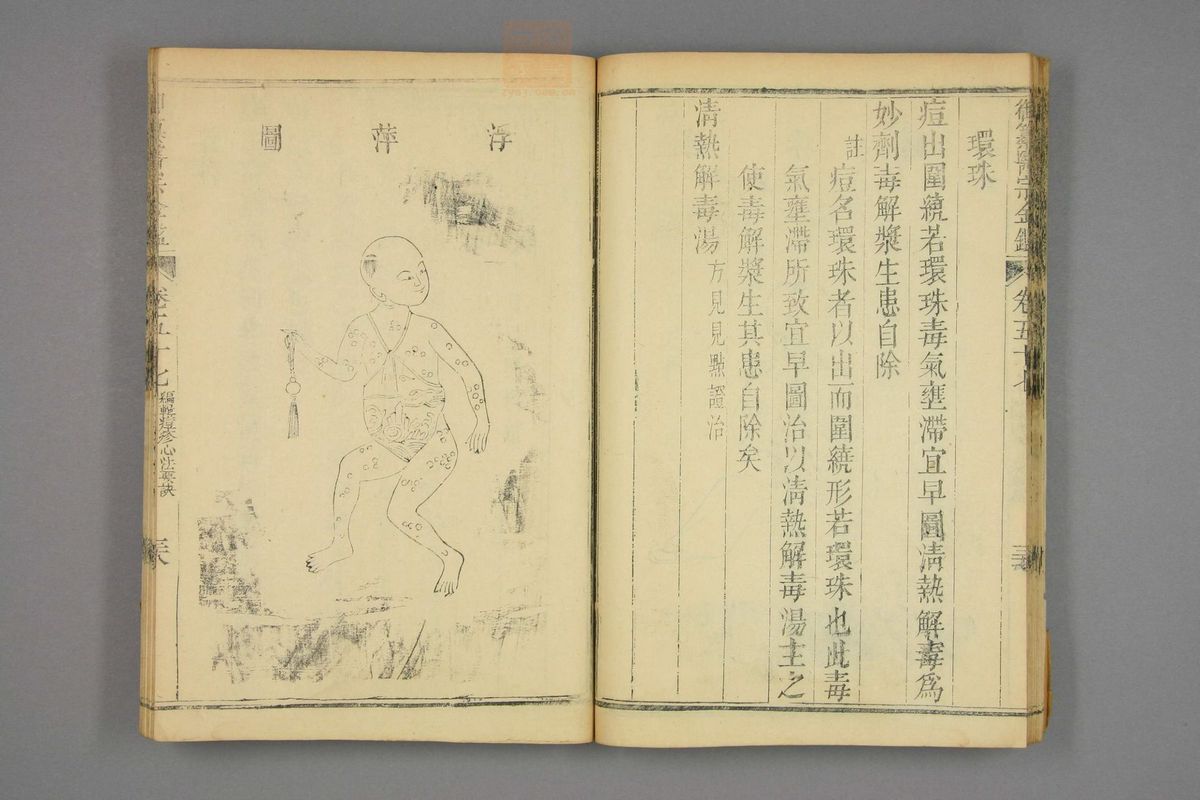 御纂醫宗金鑑 卷五十七
環珠
痘出圍繞若環珠毒氣壅滯宜早圖清熱解毒為
妙劑毒解漿生患自除
註 痘名環珠者以出而圍繞形若環珠也此毒
氣壅滯所致宜早圖治以清熱解毒湯主之
使毒解漿生其患自除矣
清熱解毒湯 方見見點證治
浮萍圖
卷五十七 編輯痘疹心法要訣 三八